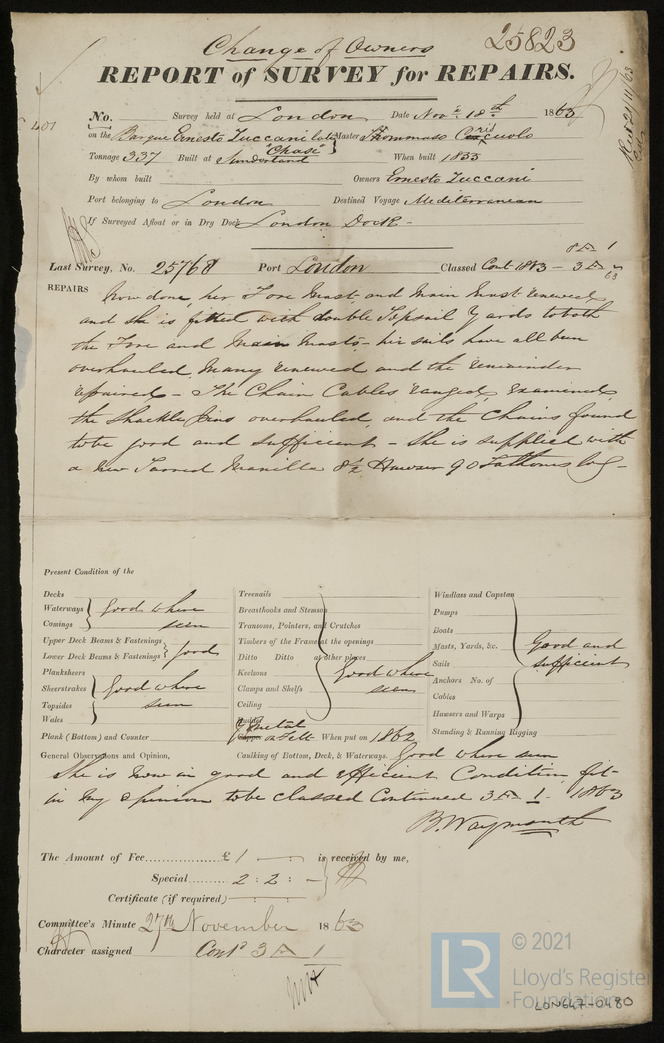 Change of Owners
25823
REPORT of SURVEY for REPAIRS.
401
No. Survey held at London Date Novr. 18th 1863
on the Barque Ernesto Zuccani late Chase Master Thommaso
Tonnage 337 Built at Sunderland When built 1835
By whom built Owners Ernesto Zuccani
Port belonging to London Destined Voyage Mediterranean
If Surveyed Afloat or in Dry Dock London Dock -
Last Survey, No. 25768 Port London Classed Cont 1863 - 3 A
8 A 1
63
REPAIRS Now done, her Fore Mast and Main Mast renewed
and she is fitted with double Topsail Yards to both
the Fore and Main Masts - her sails have all been
overhauled, Many renewed and the remainder
repaired - The Chain Cables ranged, examined
the Shackle Pins overhauled, and the Chains found
to be good and sufficient - She is supplied with
a new Tarred Manilla 8½ Hawser 90 Fathoms long -
Present Condition of the
Decks
Waterways
Comings
Good where seen
Upper Deck Beams & Fastenings
Lower Deck Beams & Fastenings
Good
Planksheers
Sheerstrakes
Topsides
Wales
Good where seen
Plank (Bottom) and Counter
Treenails
Breasthooks and Stemson
Transoms, Pointers, and Crutches
Timbers of the Frame at the openings
Ditto Ditto at other places
Keelsons
Clamps and Shelfs
Ceiling
Rudder
Good where seen
Y Metal
Copper on Felt When put on 1862
Windlass and Capstan
Pumps
Boats
Masts, Yards, &c.
Sails
Anchors No. of
Cables
Hawsers and Warps
Standing & Running Rigging
Good and sufficient
General Observations and Opinion, Caulking of Bottom, Deck, & Waterways. Good where seen
She is now in good and efficient Condition, fit
in my opinion to be classed Continued 3 A 1 - 1863
B. Waymouth
The Amount of Fee £ 1 is received by me,
Special 2 : 2 : -
Certificate (if required)
Committee's Minute 27th November 1863
Character assigned Contd 3 A 1
LR © 2021
Lloyd's Register
Foundation
LON647-0480